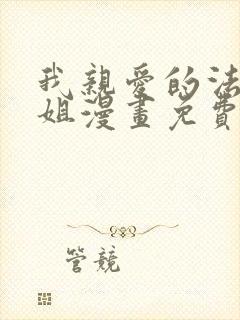 我親愛的法
姐漫畫免費
管競